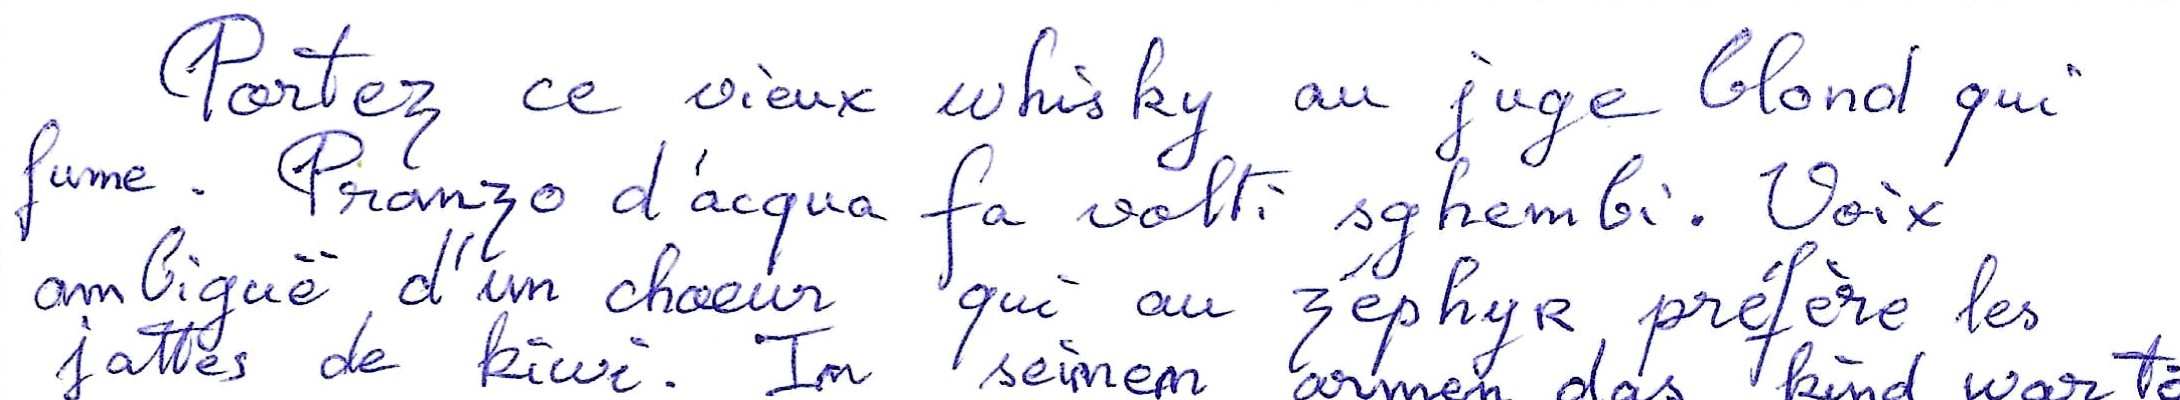 Portez ce vieux whisky au juge blond qui
fume. Pranzo d'acqua fa volti sghembi. Voix
ambiguë d'un choeur qui au zéphyr préfère les
jattes de kiwi. Im seinem armen das kind